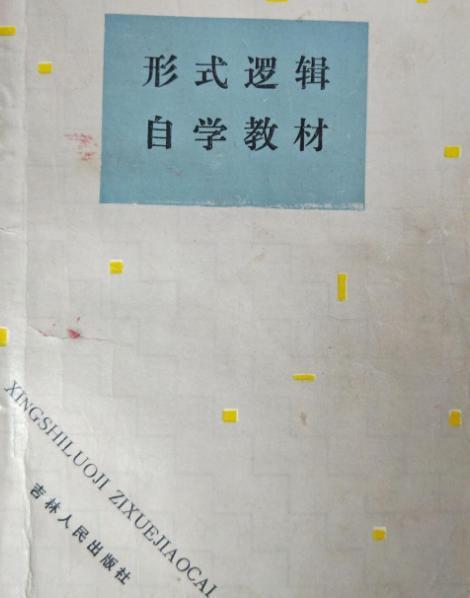 形式逻辑
自学教材
XINGSHILUOJI ZIXUEJIAOCAI
吉林人民出版社